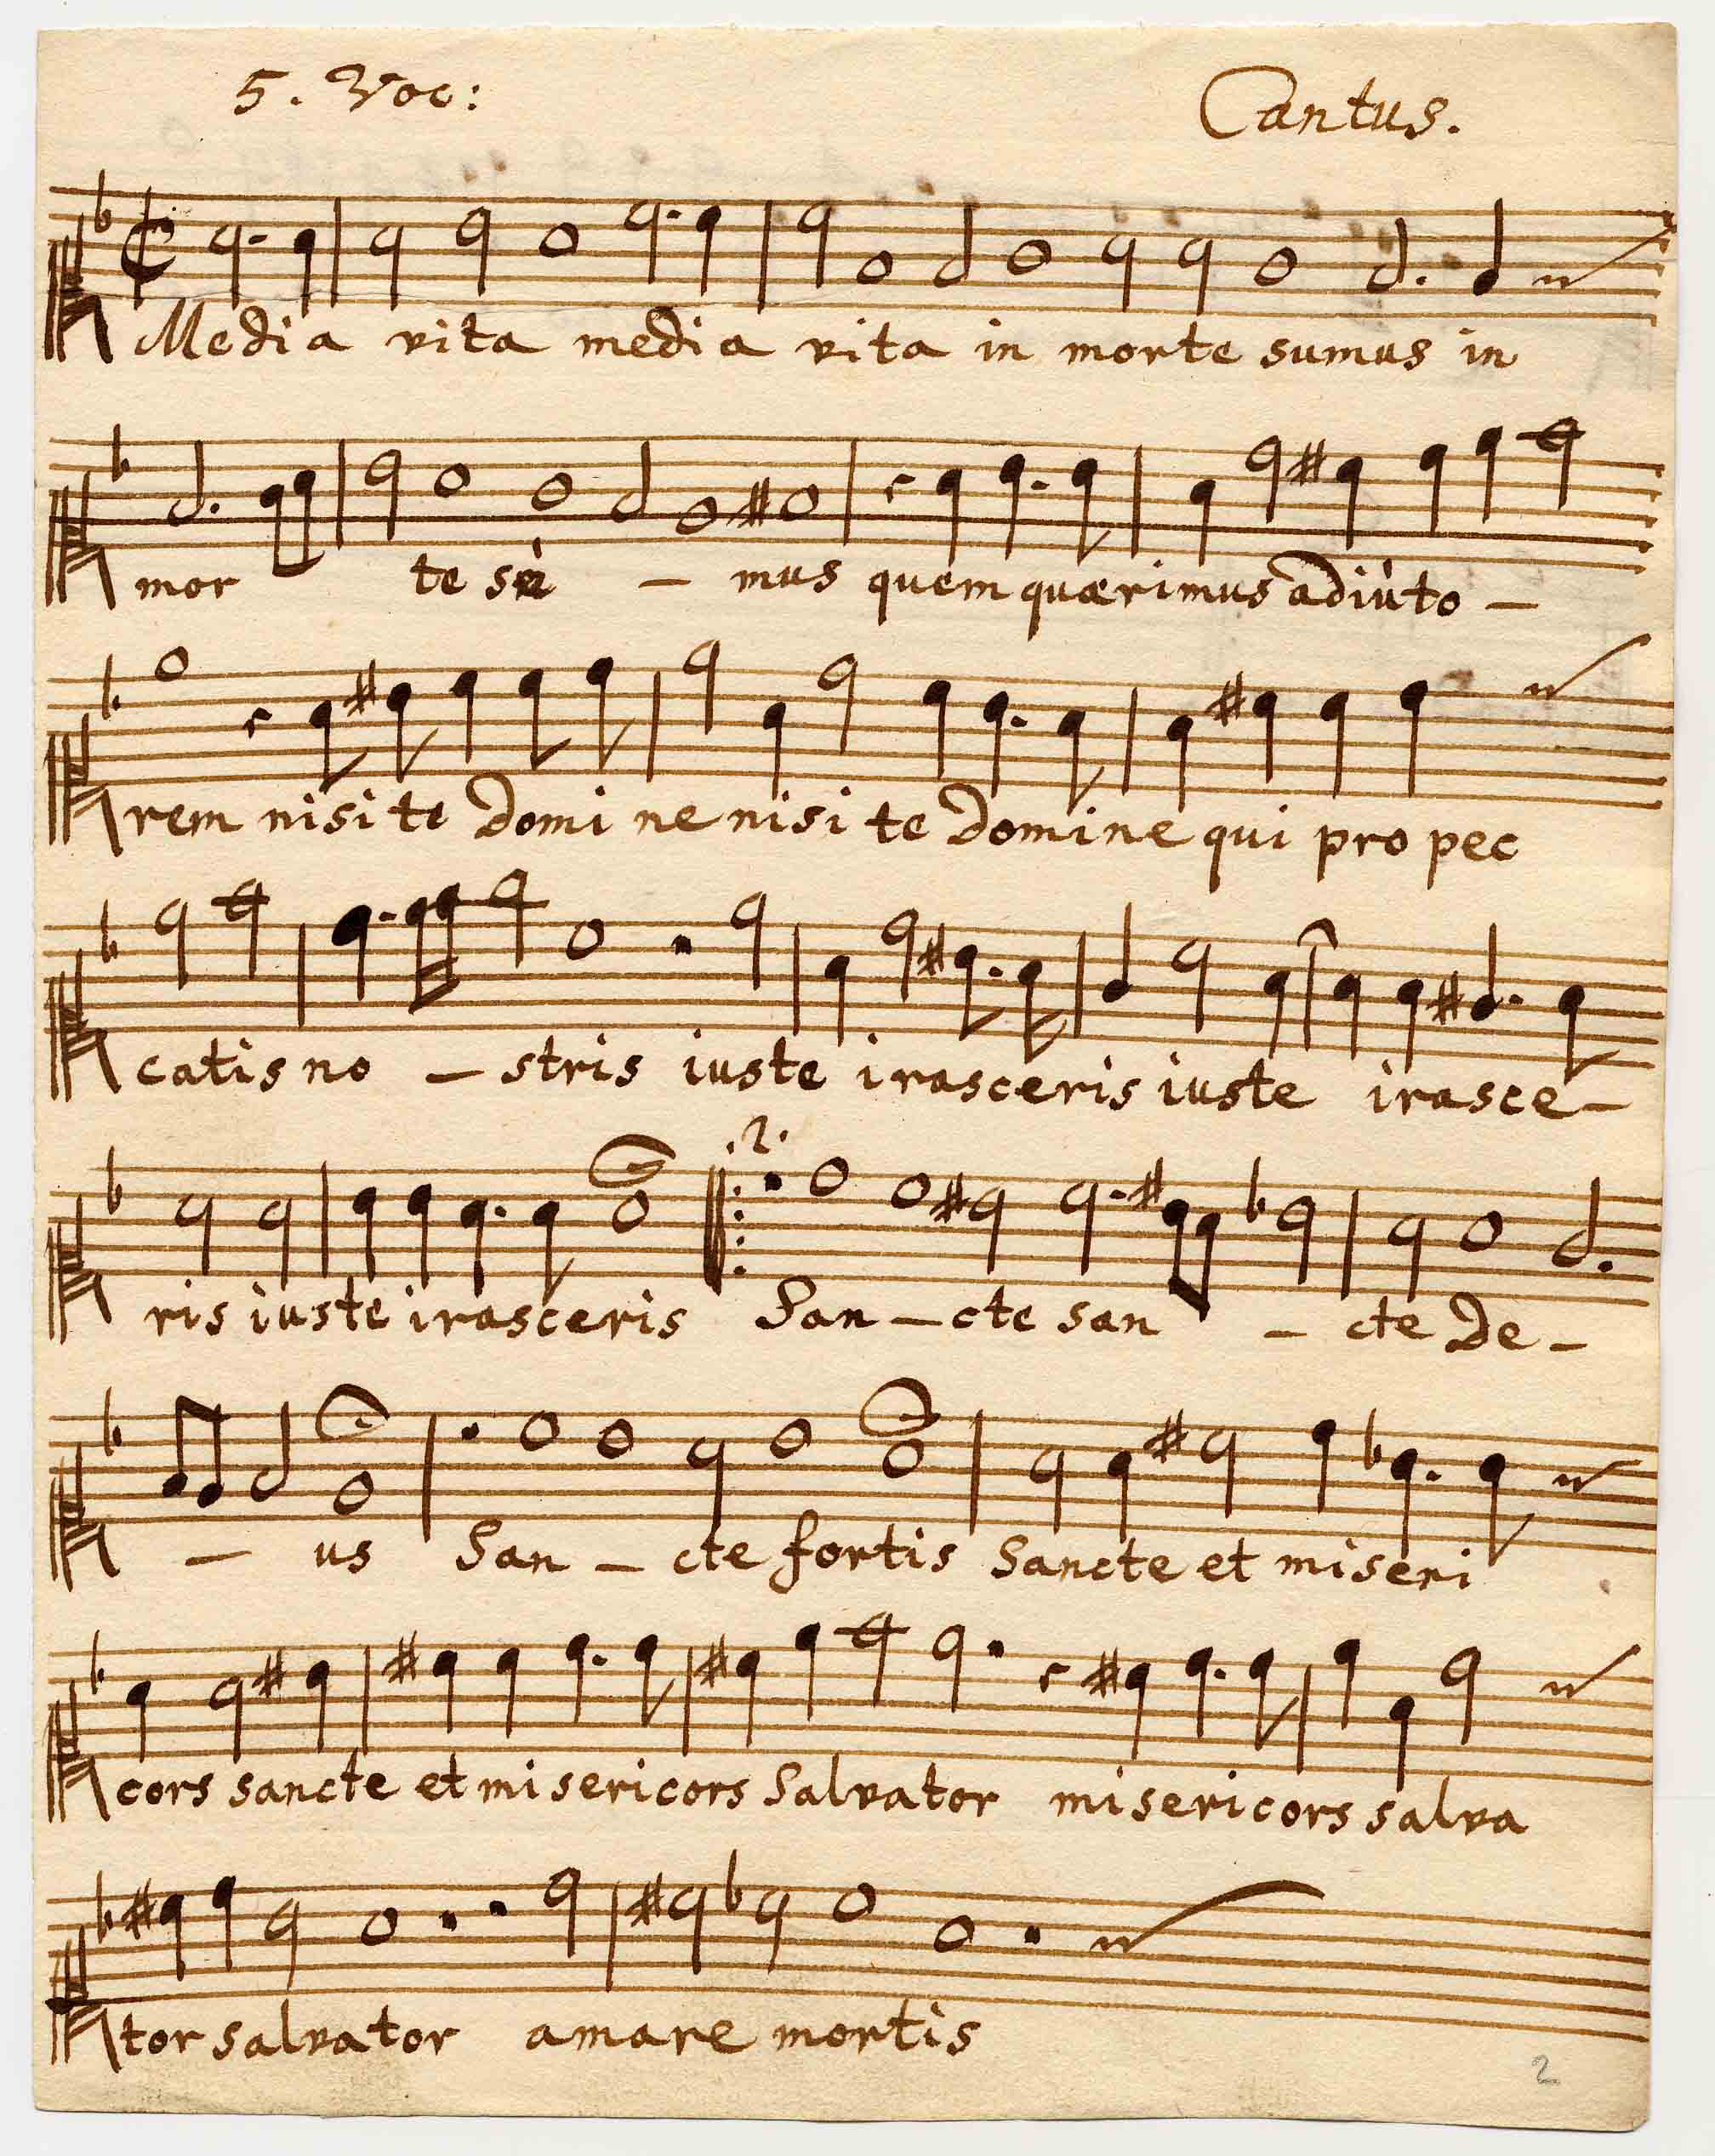 5. Voc: Cantus.
Media vita media vita in morte sumus in
mor te sù – mus quem quærimus adiùto –
rem nisi te Domine nisi te Domine qui pro pec
catis no – stris iuste irasceris iuste irasce –
.2.
ris iuste irasceris San – cte san – cte De –
– us San – cte fortis Sancte et miseri
cors sancte et misericors Salvator misericors salva
tor salvator amare mortis
2